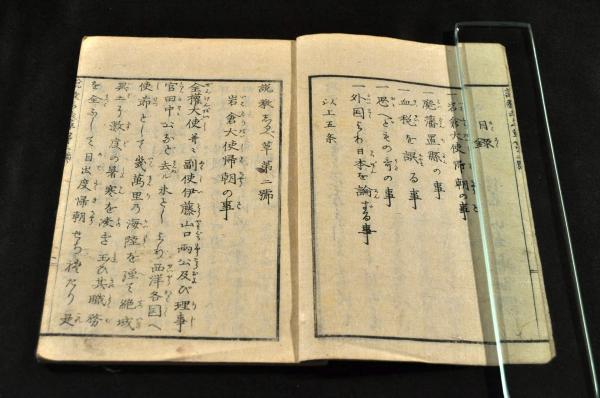 目録
一岩倉大使帰朝の事
一廃藩置縣の事
一血税を誤る事
一恩へどもの奇の事
一外国ゟ日本を論ずる事
以上五条
説教 草第二號
岩倉大使帰朝の事
全権大使并ニ副使伊藤山口両公及び理事
官田中公など去ル 西洋各国へ
使節として幾萬里乃海陸を 絶域
異土ニ数度の暑寒を凌ぎ玉ひ其職務
を全ふして目出度帰朝